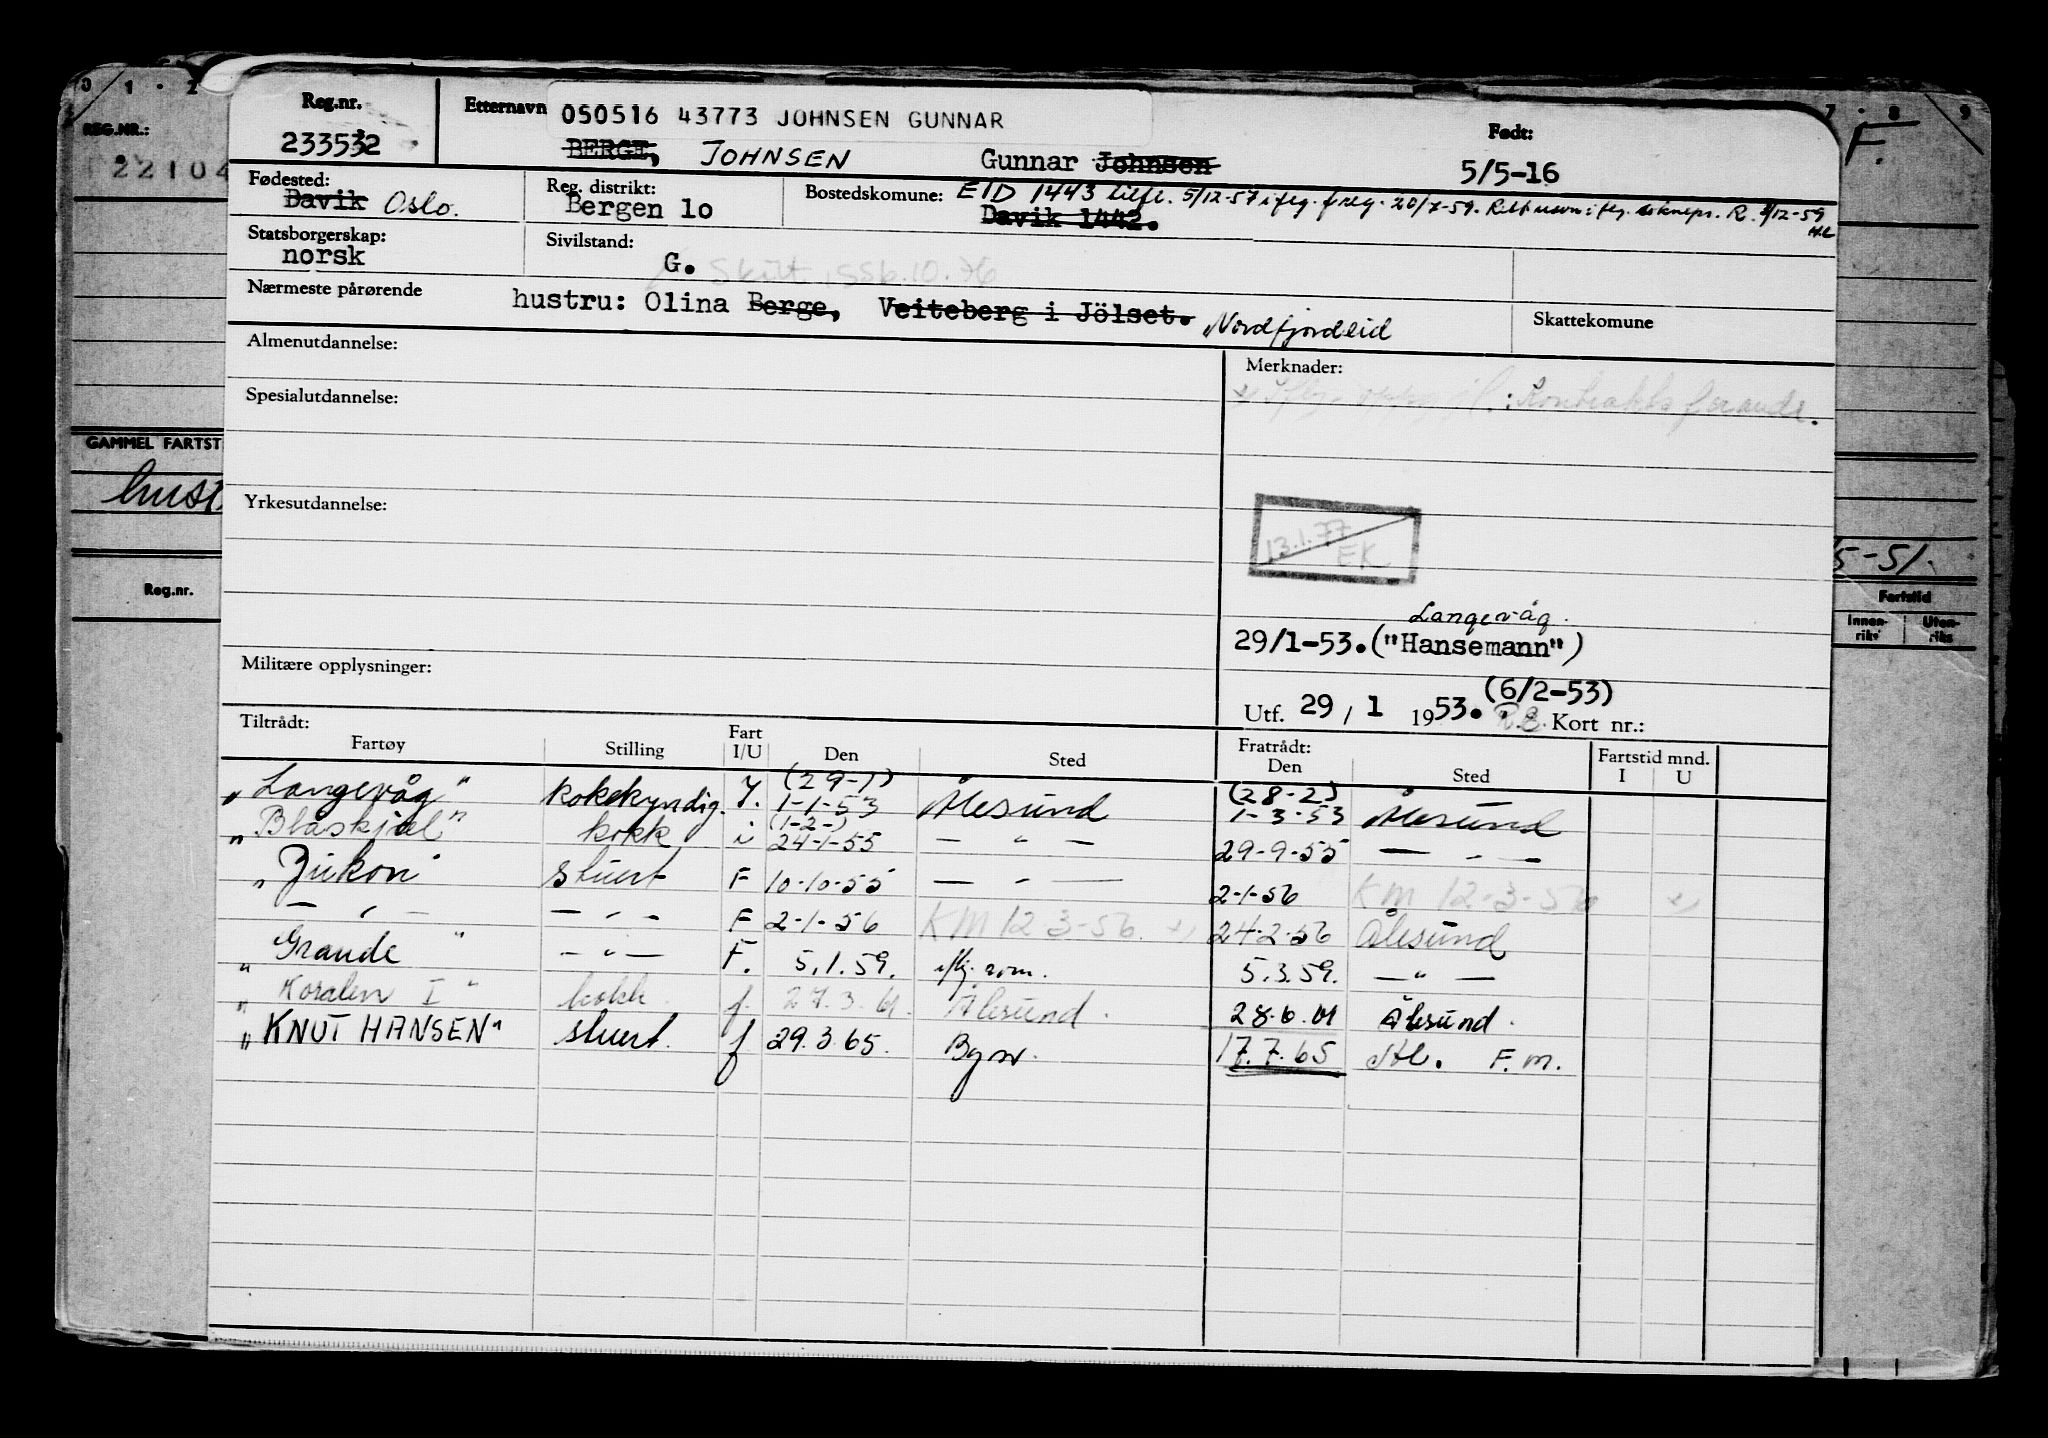 0 1 - 2
7 - 8 9
REG.NR.:
22104
F.
GAMMEL FARTST
hust
5-51.
Reg.nr.
Fartstid
Innen-riks Uten-riks
Reg.nr. Etternavn 050516 43773 JOHNSEN GUNNAR Født:
233532 BERGE, JOHNSEN Gunnar Johnsen 5/5-16
Fødested: Reg. distrikt: Bostedskomune: EID 1443 5/12-57 i flg. freg. 20/7-59. R. /12-59
Davik Oslo. Bergen lo Davik 1442.
Statsborgerskap: Sivilstand:
norsk G. Skilt 10.76
Nærmeste pårørende hustru: Olina Berge, Veiteberg i Jölset. Nordfjordeid Skattekomune
Almenutdannelse: Merknader:
Spesialutdannelse: : Kontrakts
Yrkesutdannelse:
13.1.77
EK
Langevåg.
29/1-53.("Hansemann")
Militære opplysninger:
(6/2-53)
Utf. 29 / 1 1953. Kort nr.:
Tiltrådt: Fratrådt: Fartstid mnd.
Fartøy Stilling Fart I/U Den Sted Den Sted I U
(29-1) (28-2)
"Langevåg" kokekyndig. I. 1-1-53 Ålesund 1-3-53 Ålesund
(1-2-)
"Blåskjel" kokk i 24-1-55 — " — 29-9-55 — " —
"Jukon" stuert F 10-10-55 — " — 2-1-56 KM 12-3-56 x)
— " — — " — F 2-1-56 KM 12 3-56. x) 24-2-56 Ålesund
"Grande" — " — F. 5.1.59. iflg. rom. 5.3.59. — " —
"Koralen I" kokk f. 27.3.61 Ålesund. 28.6.61 Ålesund.
"KNUT HANSEN" stuert. f 29.3.65. 17.7.65 F.m.